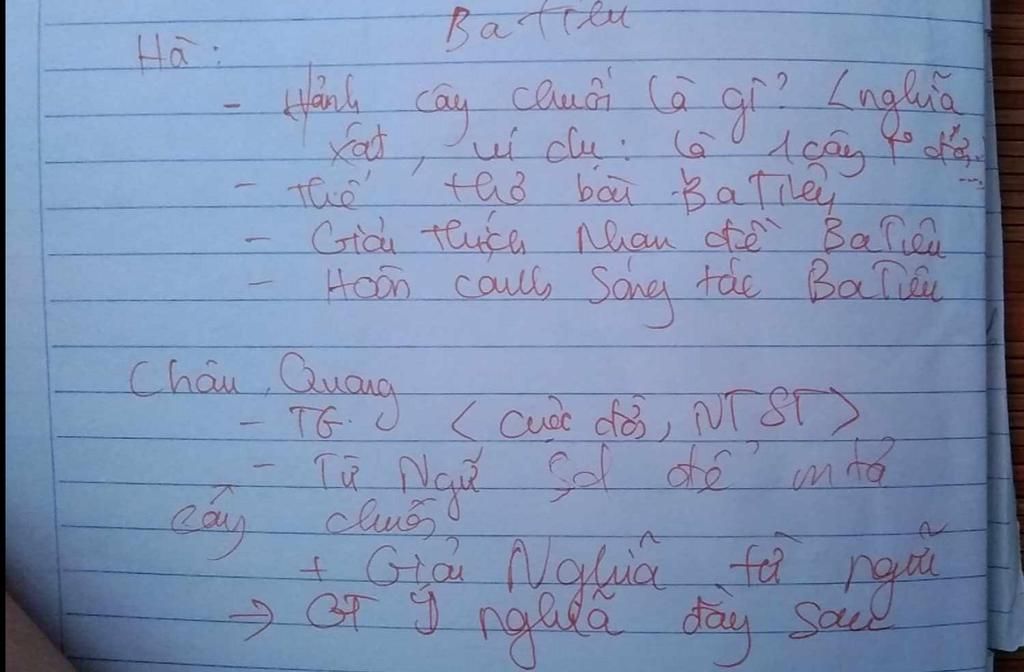 Ba Tiêu
Hà:
- Hảnh cây chuối là gì? <nghĩa
xát, ví dụ: là 1 cây
- thể thơ bài Ba Tiêu
- Giải thích Nhan đề Ba Tiêu
- Hoãn cảnh sáng tác Ba Tiêu
Châu, Quang
- TG. <cuộc đời, NTST>
- Từ Ngữ Sd để m tả
cây chuối
+ Giải Nghĩa từ ngữ
→ GT Ý nghĩa đằy sau